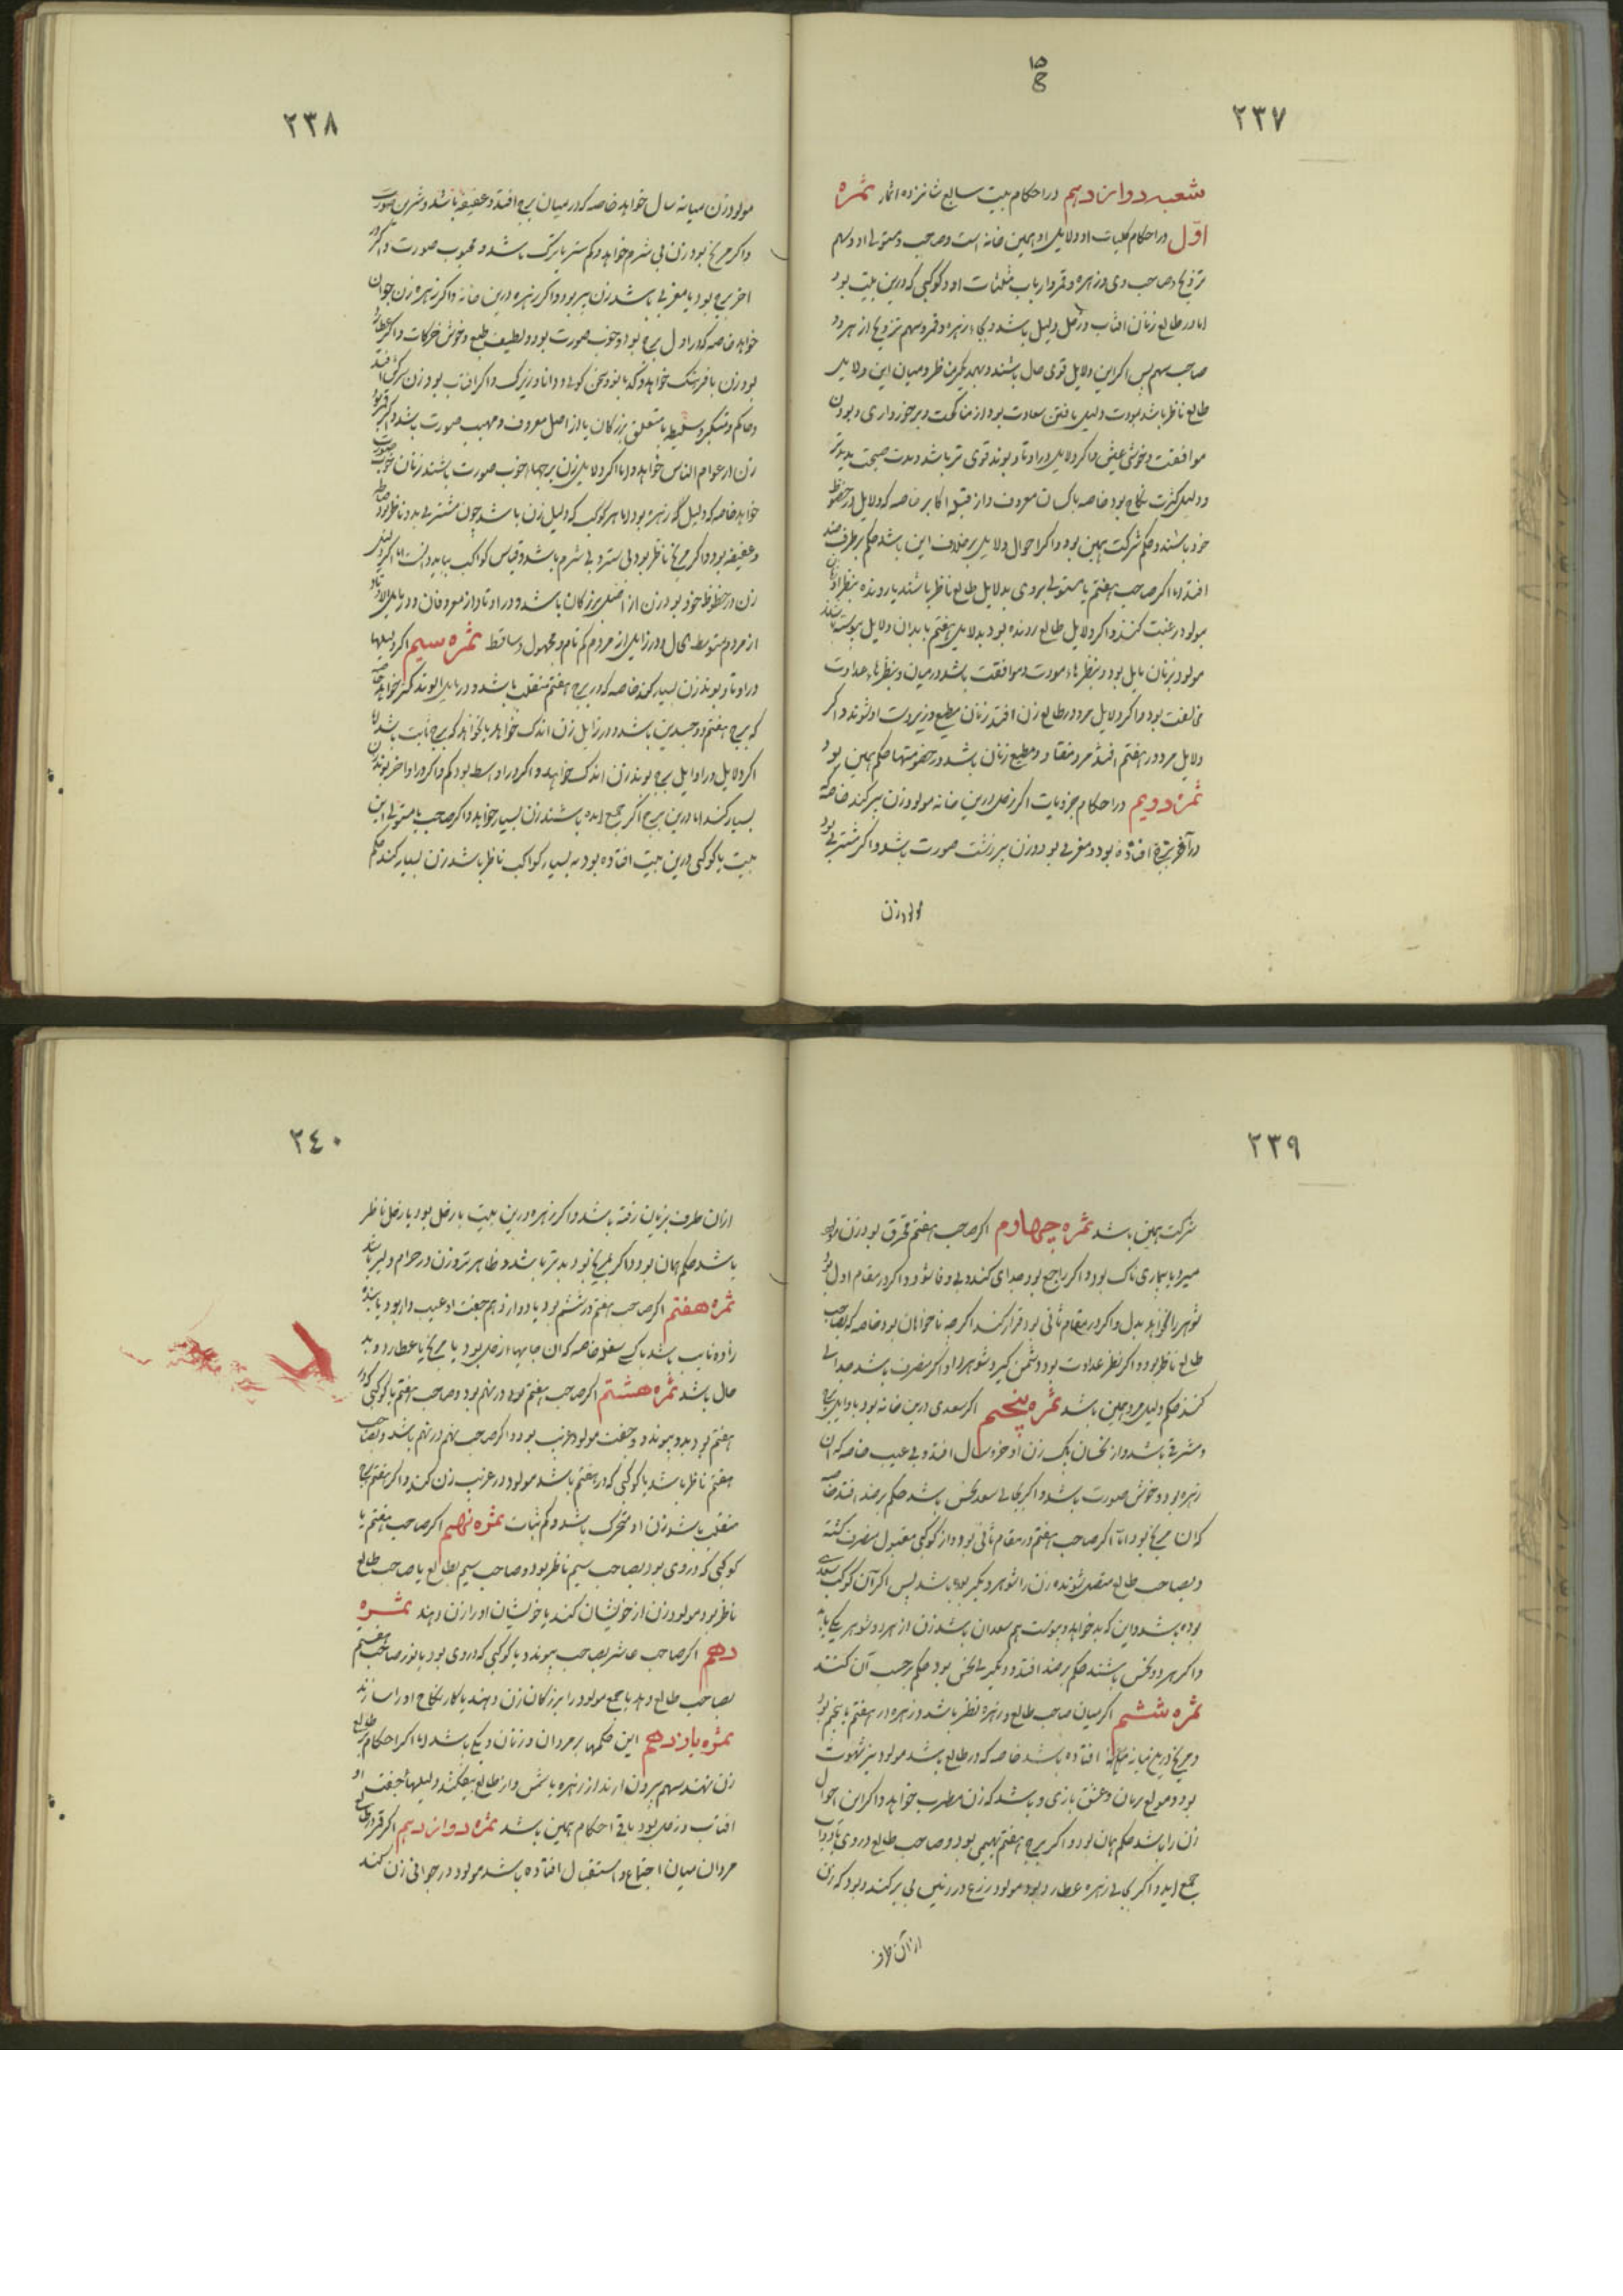 ۱۵
۲۳۷
شعبه دوازدهم در احکام بیت سابع شانزده اثمار ثمره
اوّل در احکام کلیات او دلایل او همین خانه است و صاحب و مستولی او و سهم
تزویج و صاحب وی و زهره و قمر و ارباب مثلثات او و کوکبی که درین بیت بود
اما در طالع زنان افتاب و زحل دلیل باشد و بجاء زهره و قمر و سهم تزویج از هر دو
صاحب سهم پس اکر این دلایل قوی حال باشند و بهمدیکر ناظر و میان این و دلایل
طالع ناظر باشد بمودت دلیل یافتن سعادت بود از مناکحت و برخورداری و بودن
موافقت و خوشی عیش و اکر دلایل در اوتاد بوند قوی تر باشد و مدت صحبت
و دلیل کثرت نکاح بود خاصه باکسان معروف و از قبیله اکابر خاصه که دلایل در حظوظ
خود باشند و حکم شرکت همین بود و اکر احوال دلایل برخلاف این باشد حکم برطرف ضد
افتد اما اکر صاحب هفتم یا مستولی بروی بدلایل طالع ناظر باشند یا رونده بنظر
مولود رغبت کنند و اکر دلایل طالع رونده بود بدلایل هفتم یا بدان دلایل پیوسته
مولود بزنان مایل بود و بنظرهاء مودت و موافقت باشد در میان و بنظرهاء عداوت
مخالفت بود و اکر دلایل مرد در طالع زن افتد زنان مطیع و زیردست او شوند و اکر
دلایل مرد در هفتم افتد مرد منقاد و مطیع زنان باشد و در خصومتها حکم همین بود
ثمره دویم در احکام جزویات اکر زحل درین خانه مولود زن پیر کند خاصه
در آخر برج افتاده بود و مغربی بود و زن پیر زشت صورت باشد و اکر مشتری بود
مولود زن
۲۳۸
مولود زن میانه سال خواهد خاصه که در میان برج افتد و عفیفه باشد و شرن صورت
و اکر مریخ بود زن بی شرم خواهد و کم ستر یا ترک باشد و محبوب صورت و اکر در
اخر برج بود یا مغربی باشد زن پیر بود و اکر زهره درین خانه و اکر زهره زن جوان
خواهد خاصه که در اول برج بود و خوب صورت بود و لطیف طبع و خوش حرکات و اکر عطارد
بود زن با فرهنک خواهد و کدبانو و سخن کوی و دانا و زیرک و اکر افتاب بود زن
و حاکم و متکبر و سلیطه یا متعلق بزرکان یا از اصل معروف و مهیب صورت باشد و اکر قمر بود
زن از عوام الناس خواهد و اما اکر دلایل زن برجهاء خوب صورت باشند زنان خوب صورت
خواهد خاصه که دلیل که زهره بود اما هر کوکب که دلیل زن باشد چون مشتری بدو ناظر بود
و عفیفه بود و اکر مریخ ناظر بود بی ستر و بی شرم باشد و قیاس کواکب بباید دانست اما اکر دلیل
زن در حظوظ خود بود زن از اصل بزرکان باشد و در اوتاد از معروفان و در مایل الاوتاد
از مردم متوسط الحال و در زایل از مردم کم نام و مجهول و ساقط ثمره سیم اکر دلیلها
در اوتاد بوند زن بسیار کند خاصه که در برج هفتم منقلب باشد و در مایل بوند کمتر خواهد خاصه
که برج هفتم ذو جسدین باشد و در زایل زن اندک خواهد یا نخواهد که برج ثابت باشد اما
اکر دلایل در اوایل برج بوند زن اندک خواهد و اکر در اوسط بود کم و اکر در اواخر بوند زن
بسیار کند اما درین برج اکر جمع آمده باشند زن بسیار خواهد و اکر صاحب یا مستولی این
بیت یا کوکبی درین بیت افتاده بود به بسیار کواکب ناظر باشد زن بسیار کند حکم
۲۳۹
شرکت همین باشد ثمره چهارم اکر صاحب هفتم محترق بود زن مولود
میرد یا بیماری ناک بود و اکر راجع بود جدای کند و بی وفا شود و اکر در مقام اول بود
شوهر را نخواهد بدل و اکر در مقام ثانی بود قرار کند اکر چه ناخواهان بود خاصه که بصاحب
طالع ناظر بود و اکر نظر عداوت بود دشمن کیرد شوهر را و اکر منصرف باشد جدایی
کنند حکم دلیل مرد همین باشد ثمره پنجم اکر سعدی درین خانه بود با دلیل
و مشرقی باشد و از نحسان پاک زن او خرد سال افتد و بی عیب خاصه که آن
زهره بود و خوش صورت باشد و اکر بجای سعد نحس باشد حکم برضد افتد خاصه
که آن مریخ بود اما اکر صاحب هفتم در مقام ثانی بود و از کوکبی مقبول منصرف کشته
و بصاحب طالع متصل شونده زن را شوهر دیکر بوده باشد پس اکر آن کوکب سعدی
بوده باشد و این که بدو خواهد پیوست هم سعد آن باشد زن از هر دو شوهر نیکی یابد
و اکر هر دو نحس باشند حکم برضد افتد و دیکر یکی نحس بود حکم برحسب آن کنند
ثمره ششم اکر میان صاحب طالع و زهره نظر باشد و زهره در هفتم یا پنجم بود
و مریخ در افتاده باشد خاصه که در طالع باشد مولود تیز شهوت
بود و مولع برنان و عشق بازی و باشد که زن مطرب خواهد و اکر این احوال
زن را باشد حکم همان بود و اکر برج هفتم بهیمی بود و صاحب طالع در وی
جمع آید و اکر بجای زهره عطارد بود مولود زرع در زمین بی بر کند و بود که زن
از آن طرف
۲۴۰
از آن طرف بزیان رفته باشد و اکر زهره درین بیت با زحل بود یا زحل ناظر
باشد حکم همان بود و اکر مریخ بود بدتر باشد و ظاهرتر و زن در حرام دلیر باشد
ثمره هفتم اکر صاحب هفتم در ششم بود یا دوازدهم جفت او عیب دار بود یا بنده
زاده یا باشد یا کسی سفله خاصه که آن جایها از زحل بود یا مریخ یا عطارد و بد
حال باشد ثمره هشتم اکر صاحب هفتم بود در نهم بود و صاحب هفتم یا کوکبی که در
هفتم بود بدو پیوندد و جفت مولود غریب بود و اکر صاحب نهم در نهم باشد و بصاحب
هفتم ناظر باشد یا کوکبی که در هفتم باشد مولود در غربت زن کند و اکر هفتم برج
منقلب باشد زن او متحرک باشد و کم ثبات ثمره نهم اکر صاحب هفتم یا
کوکبی که در وی بود بصاحب سیم ناظر بود و صاحب سیم بطالع یا صاحب طالع
ناظر بود مولود زن از خویشان کند یا خویشان او را زن دهند ثمره
دهم اکر صاحب عاشر بصاحب پیوندد یا کوکبی که در وی بود یا نور صاحب هفتم
بصاحب طالع دهد یا جمع مولود را بزرکان زن دهند یا کار نکاح او را سازند
ثمره یازدهم این حکمها بر مردان و زنان یکی باشد اما اکر احکام بر طالع
زن نهند سهم بیرون آرند از زهره یا شمس و از طالع بیفکنند و دلیلهاء جفت او
افتاب و زحل بود باقی احکام همین باشد ثمره دوازدهم اکر قمر در طالع
مردان میان اجتماع و استقبال افتاده باشد مولود در جوانی زن کند